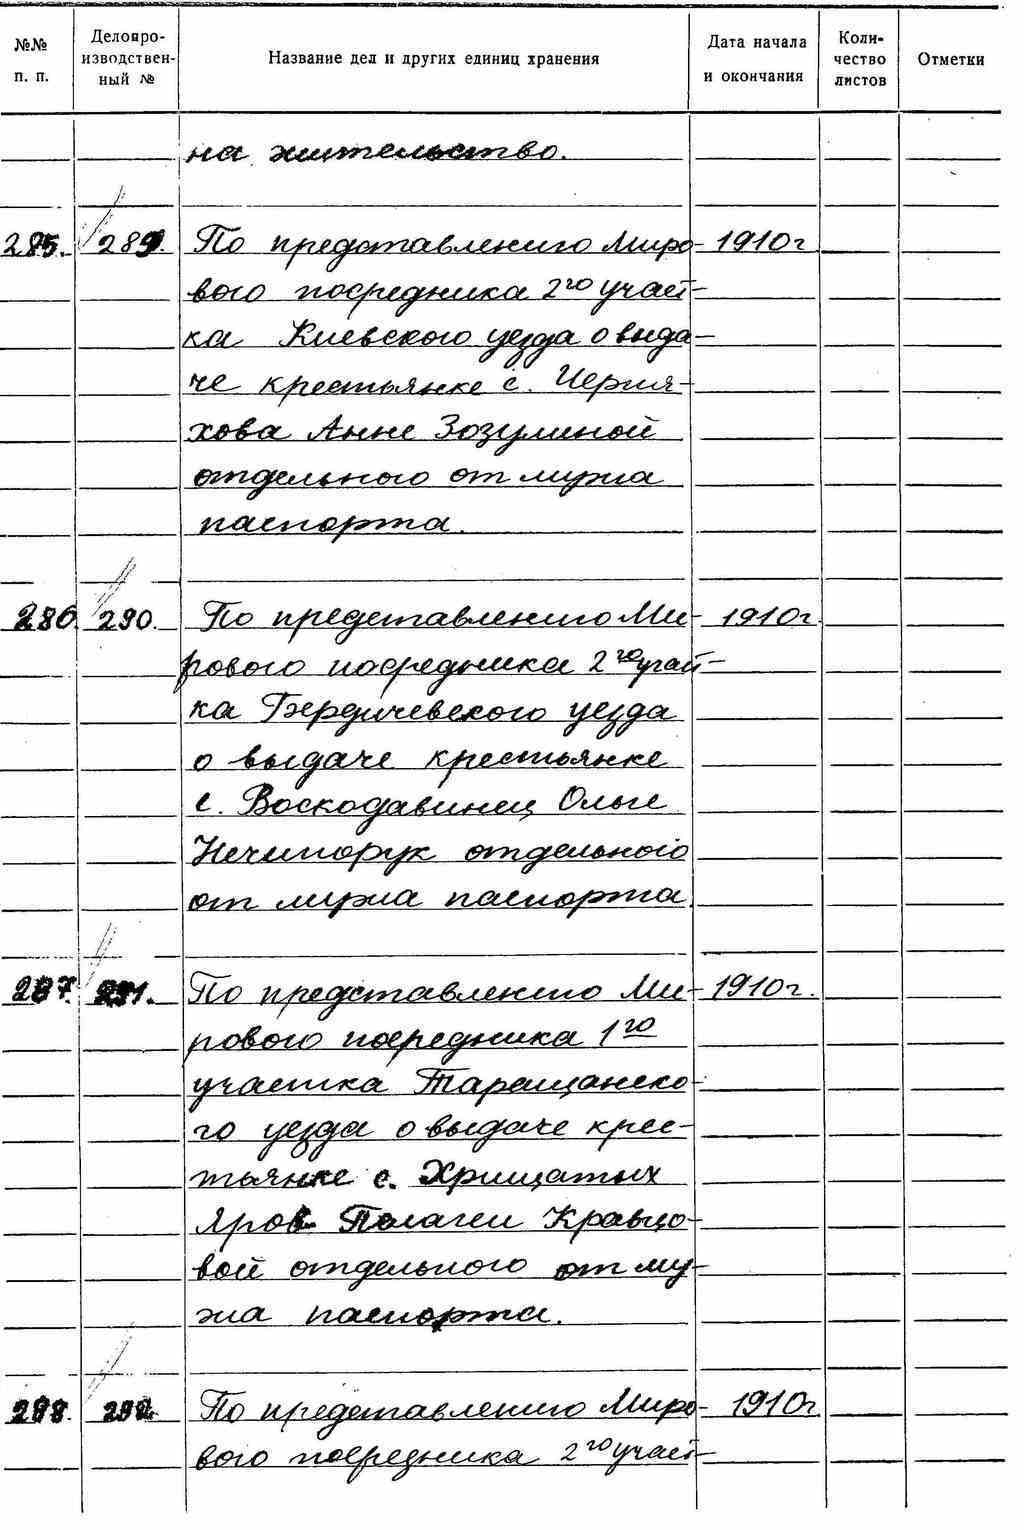 №№ п. п. Делопроизводственный № Название дел и других единиц хранения Дата начала и окончания Количество листов Отметки
на жительство.
285. 289. По представлению Миро- 1910 г
вого посредника 2го участ-
ка Киевского уезда о выда-
че крестьянке с. Черня-
хова Анне Зозулиной
отдельного от мужа
паспорта.
286. 290. По представлению Ми- 1910 г.
рового посредника 2го участ-
ка Бердичевского уезда
о выдаче крестьянке
с. Воскодавинец Ольге
Нечипорук отдельного
от мужа паспорта.
287. 291. По представлению Ми- 1910 г.
рового посредника 1го
участка Таращанско-
го уезда о выдаче крес-
тьянке с. Хрищатых
Яров Пелагеи Кравцо-
вой отдельного от му-
жа паспорта.
288. 292. По представлению Миро- 1910 г.
вого посредника 2го участ-